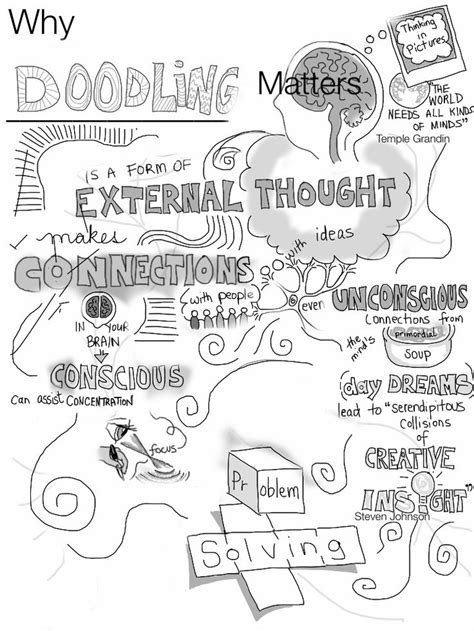 Why
DOODLING Matters
Thinking
in
Pictures
"THE
WORLD
NEEDS ALL KINDS
OF MINDS"
Temple Grandin
IS A FORM OF
EXTERNAL THOUGHT
✓ makes
CONNECTIONS
with ideas
with people
IN YOUR
BRAIN
even UNCONSCIOUS
Connections from
the mind's
primordial
SOUP
CONSCIOUS
can assist CONCENTRATION
focus
day DREAMS
lead to "serendipitous
collisions
of
CREATIVE
INSIGHT"
Steven Johnson
Problem
Solving